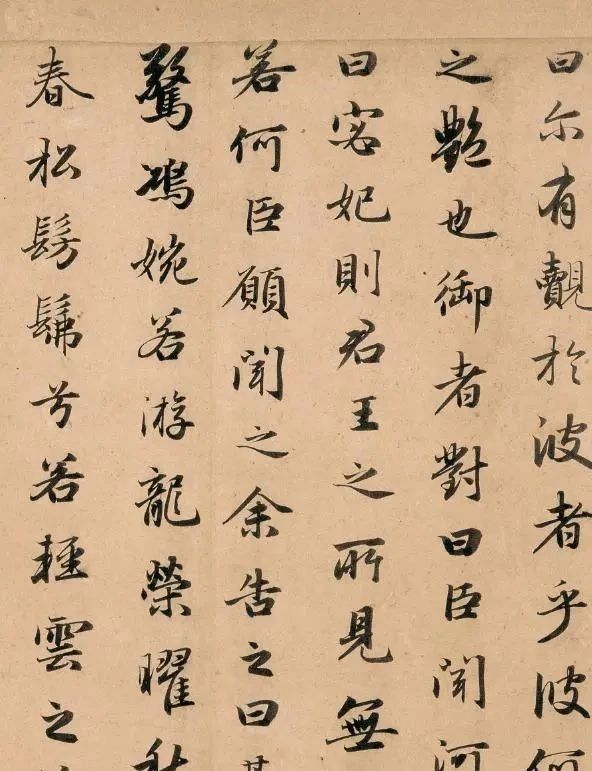 曰尓有覿於彼者乎彼何
之艶也御者對曰臣聞河
曰宓妃則君王之所見無
若何臣願聞之余告之曰其
驚鴻婉若游龍榮曜秋
春松髣髴兮若輕雲之